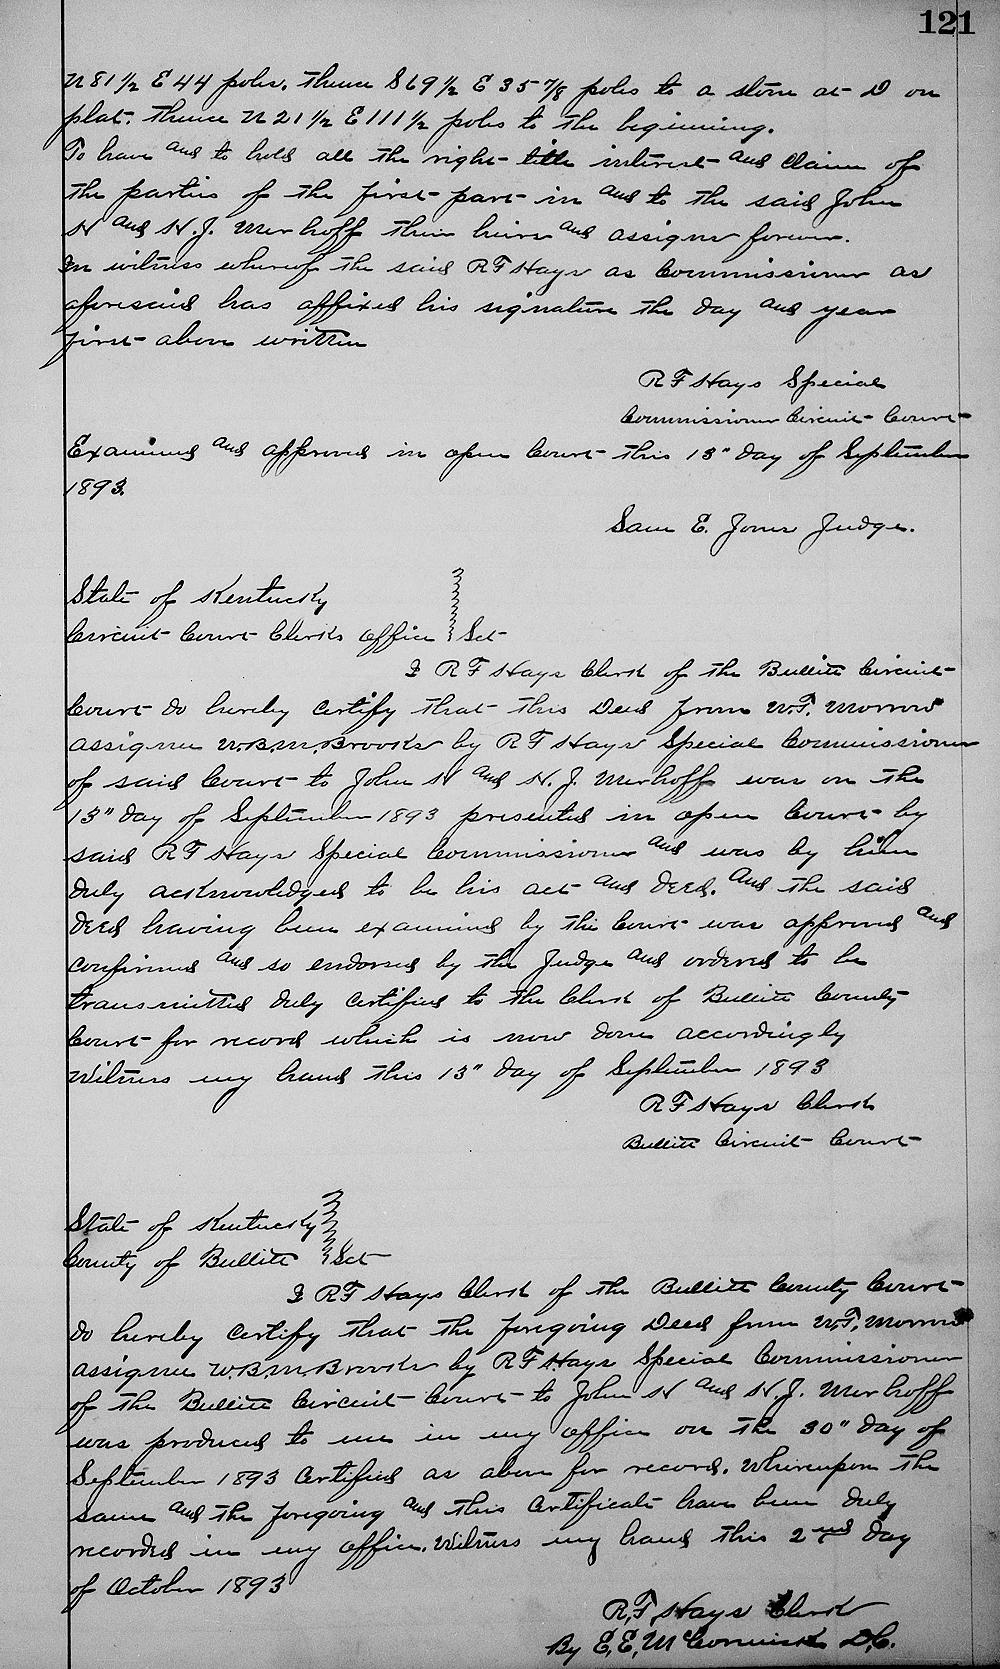 121
N 81 1/2 E 44 poles. thence S 69 1/2 E 35 7/8 poles to a stone at D on
plat. thence N 21 1/2 E 111 1/2 poles to the beginning.
To have and to hold all the right title interest and claim of
the parties of the first part in and to the said John
H and H. J. Merhoff their heirs and assigns forever.
In witness whereof the said R F Hays as Commissioner as
aforesaid has affixed his signature the day and year
first above written
R F Hays Special
Commissioner Circuit Court
Examined and approved in open Court this 13" day of September
1893.
Sam E. Jones Judge.
State of Kentucky
Circuit Court Clerks office Sct
I R F Hays Clerk of the Bullitt Circuit
Court do hereby certify that this Deed from W. T. Morrow
assignee W. B. M. Brooks by R F Hays Special Commissioner
of said Court to John H and H. J. Merhoff was on the
13" day of September 1893 presented in open Court by
said R F Hays Special Commissioner and was by him
duly acknowledged to be his act and deed. And the said
deed having been examined by the Court was approved and
confirmed and so endorsed by the Judge and ordered to be
transmitted duly certified to the Clerk of Bullitt County
Court for record which is now done accordingly
Witness my hand this 13" day of September 1893
R F Hays Clerk
Bullitt Circuit Court
State of Kentucky
County of Bullitt Sct
I R F Hays Clerk of the Bullitt County Court
do hereby certify that the foregoing Deed from W. T. Morrow
assignee W. B. M. Brooks by R F Hays Special Commissioner
of the Bullitt Circuit Court to John H and H. J. Merhoff
was produced to me in my office on the 30" day of
September 1893 certified as above for record. Whereupon the
same and the foregoing and this certificate have been duly
recorded in my office. Witness my hand this 2nd day
of October 1893
R. F. Hays Clerk
By E. E. McCormick D. C.